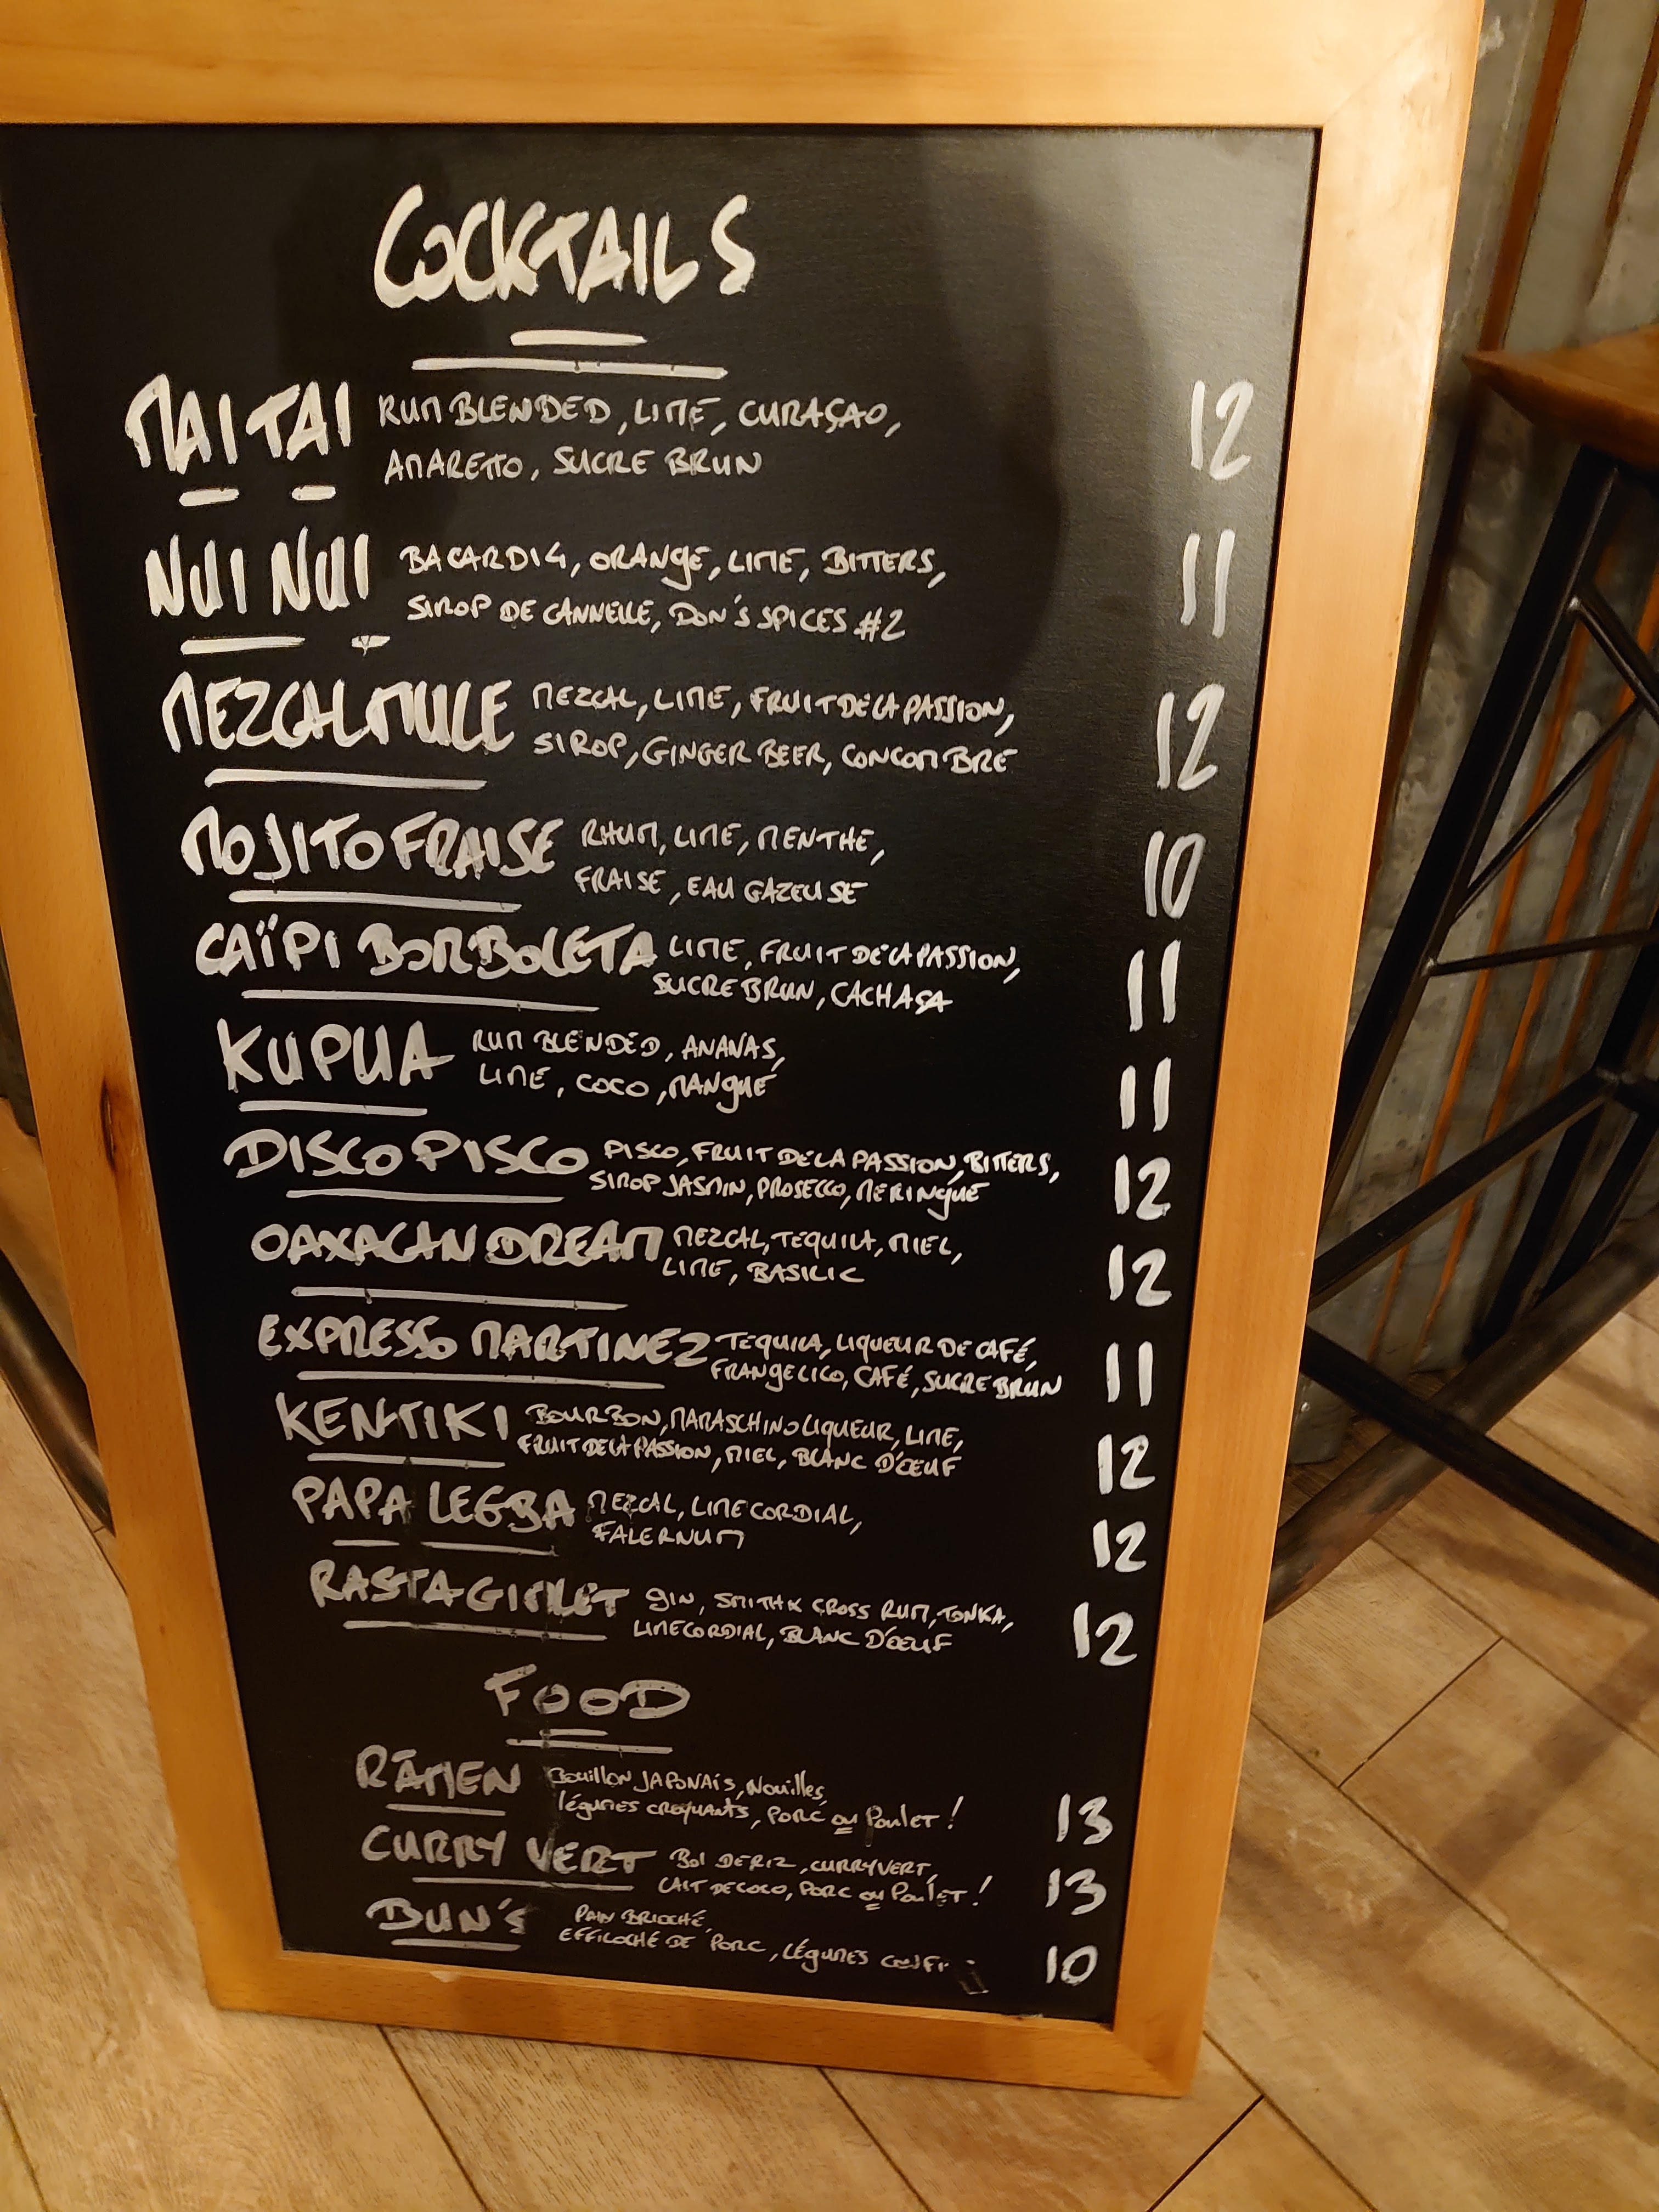 COCKTAILS
MAI TAI RUM BLENDED, LIME, CURAÇAO, 12
AMARETTO, SUCRE BRUN
NUI NUI BACARDI 4, ORANGE, LIME, BITTERS, 11
SIROP DE CANNELLE, DON'S SPICES #2
MEZCAL MULE MEZCAL, LIME, FRUIT DE LA PASSION, 12
SIROP, GINGER BEER, CONCOMBRE
MOJITO FRAISE RHUM, LIME, MENTHE, 10
FRAISE, EAU GAZEUSE
CAÏPI BORBOLETA LIME, FRUIT DE LA PASSION, 11
SUCRE BRUN, CACHAÇA
KUPUA RUM BLENDED, ANANAS, 11
LIME, COCO, MANGUE
DISCO PISCO PISCO, FRUIT DE LA PASSION, BITTERS, 12
SIROP JASMIN, PROSECCO, MERINGUE
OAXACAN DREAM MEZCAL, TEQUILA, MIEL, 12
LIME, BASILIC
EXPRESSO MARTINEZ TEQUILA, LIQUEUR DE CAFÉ, 11
FRANGELICO, CAFÉ, SUCRE BRUN
KEN-TIKI BOURBON, MARASCHINO LIQUEUR, LIME, 12
FRUIT DE LA PASSION, MIEL, BLANC D'ŒUF
PAPA LEGBA MEZCAL, LIME CORDIAL, 12
FALERNUM
RASTA GIMLET GIN, SMITH & CROSS RUM, TONKA, 12
LIME CORDIAL, BLANC D'ŒUF
FOOD
RĀMEN Bouillon JAPONAIS, Nouilles,
légumes croquants, Porc ou Poulet! 13
CURRY VERT Bol DE RIZ, CURRY VERT,
LAIT DE COCO, PORC ou Poulet! 13
BUN'S PAIN BRIOCHÉ,
EFFILOCHÉ DE PORC, LÉGUMES 10